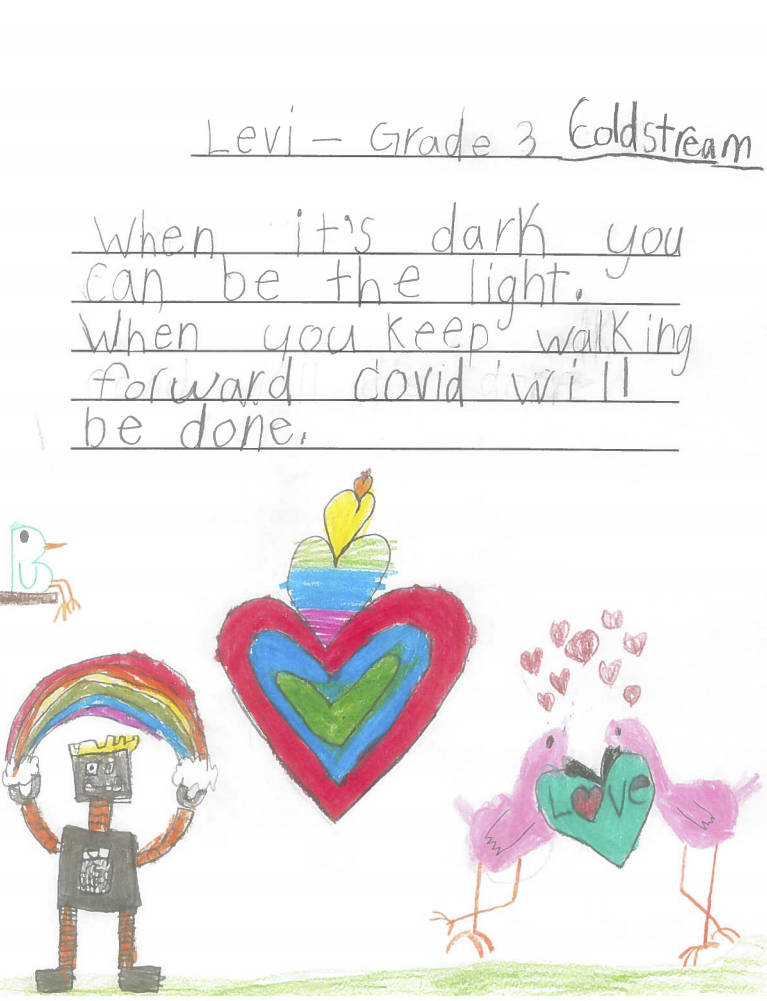 Levi - Grade 3 Coldstream
When it's dark you
can be the light.
When you keep walking
forward covid will
be done.
LOVE